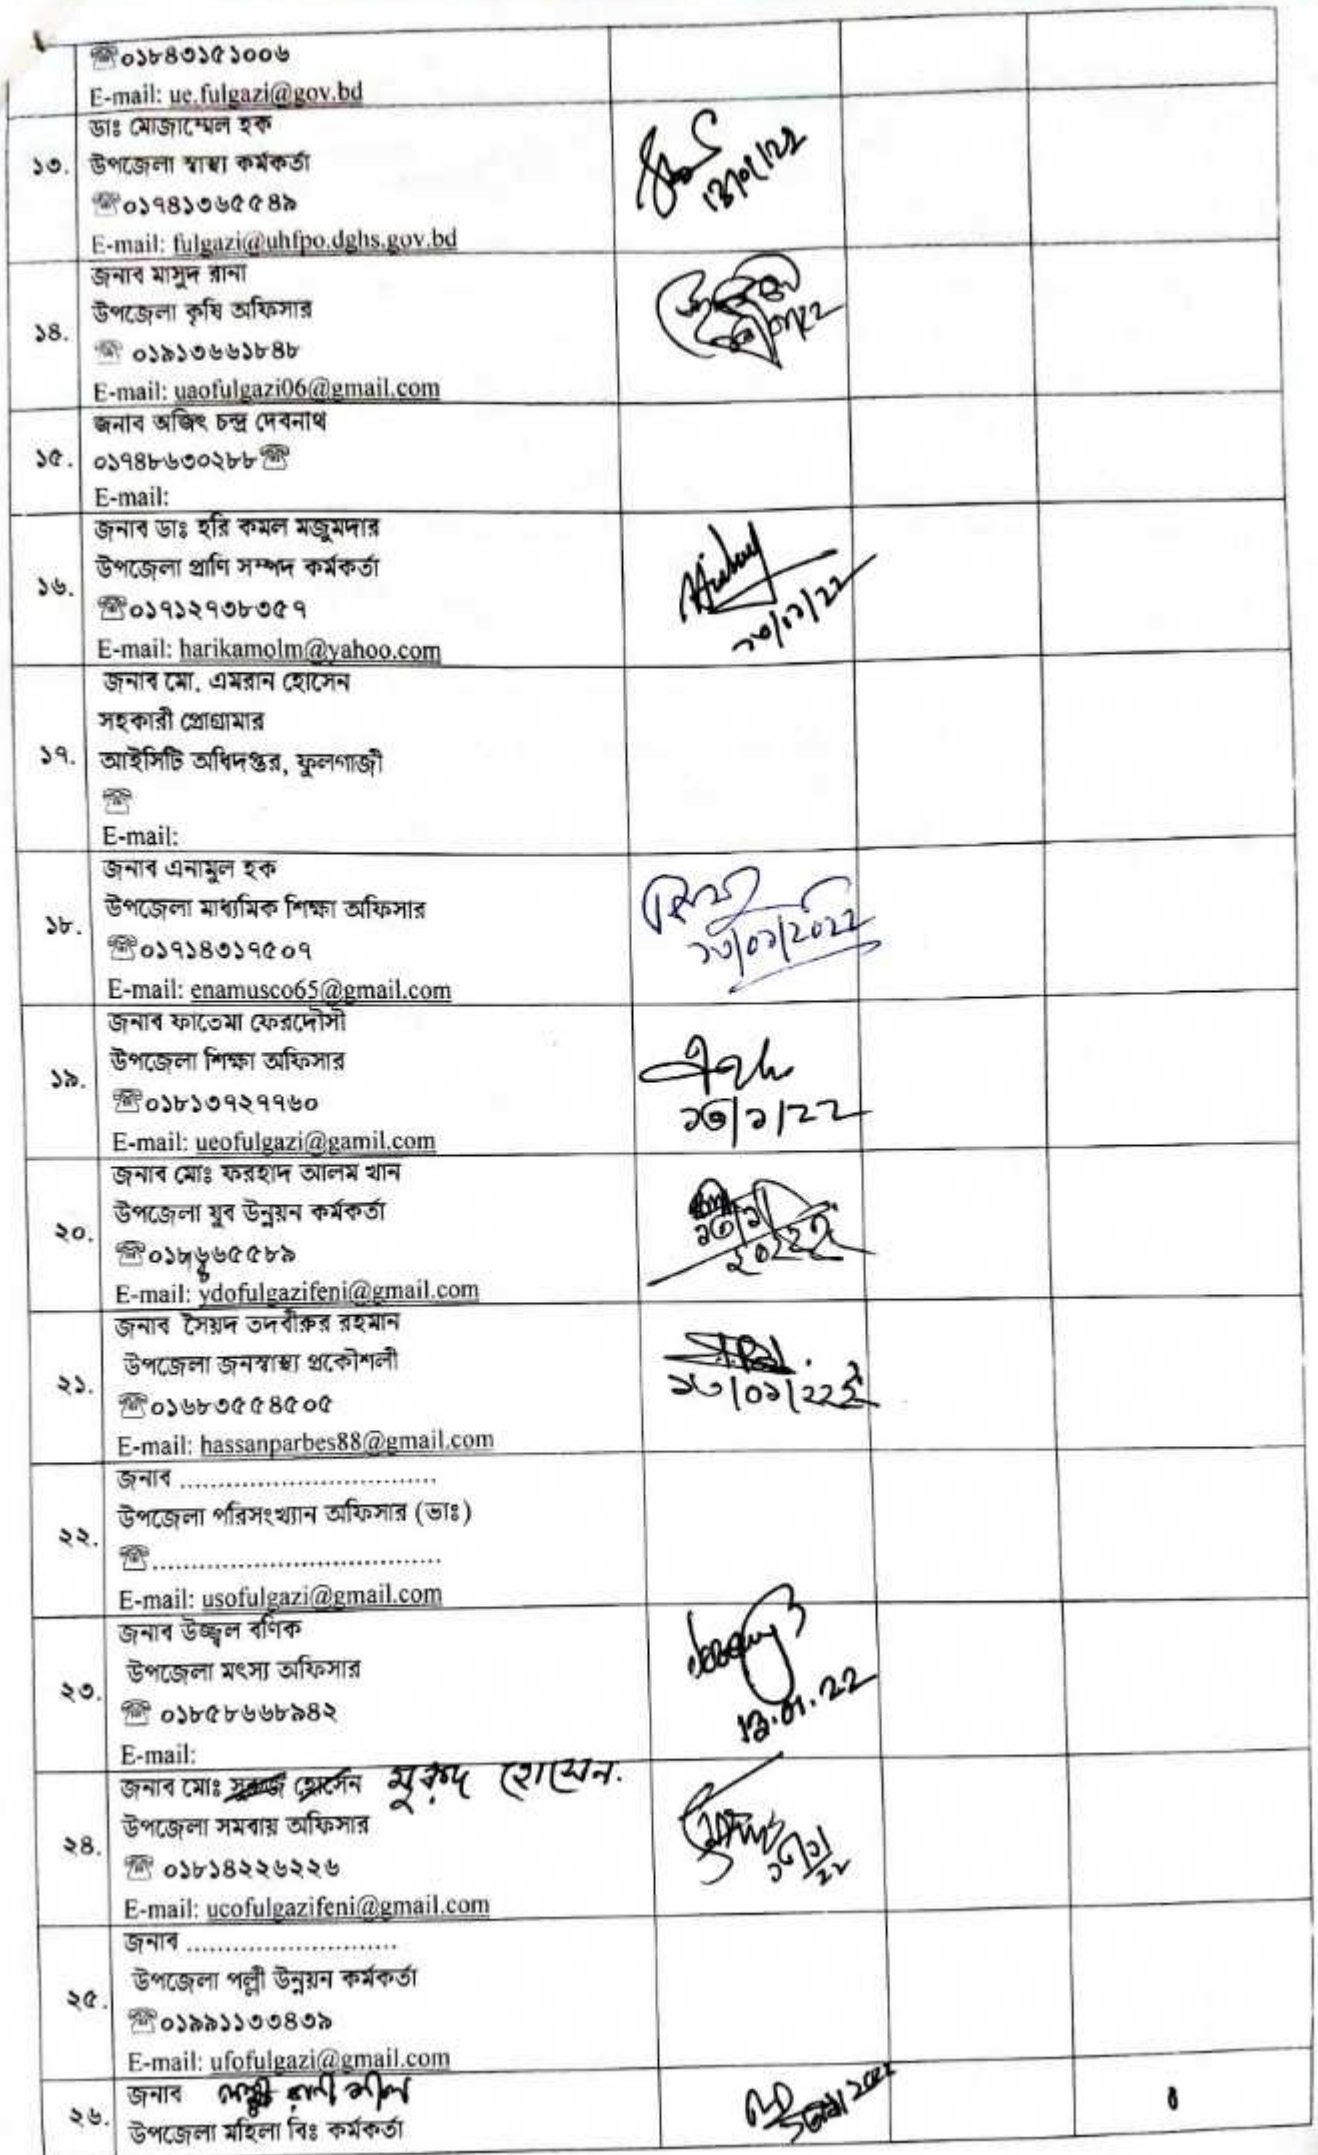 ☏০১৮৪৩১৫১০০৬
E-mail: ue.fulgazi@gov.bd
ডাঃ মোজাম্মেল হক
১৩. উপজেলা স্বাস্থ্য কর্মকর্তা
☏০১৭৪১৩৬৫৫৪৯
E-mail: fulgazi@uhfpo.dghs.gov.bd
জনাব মাসুদ রানা
উপজেলা কৃষি অফিসার
১৪.
☏ ০১৯১৩৬৬১৮৪৮
E-mail: uaofulgazi06@gmail.com
জনাব অজিৎ চন্দ্র দেবনাথ
১৫. ০১৭৪৮৬৩০২৮৮☏
E-mail:
জনাব ডাঃ হরি কমল মজুমদার
উপজেলা প্রাণি সম্পদ কর্মকর্তা
১৬.
☏০১৭১২৭৩৮৩৫৭
২৩/০১/২২
E-mail: harikamolm@yahoo.com
জনাব মো. এমরান হোসেন
সহকারী প্রোগ্রামার
১৭. আইসিটি অধিদপ্তর, ফুলগাজী
☏
E-mail:
জনাব এনামুল হক
উপজেলা মাধ্যমিক শিক্ষা অফিসার
১৮.
☏০১৭১৪৩১৭৫০৭
১৩/০১/2022
E-mail: enamusco65@gmail.com
জনাব ফাতেমা ফেরদৌসী
উপজেলা শিক্ষা অফিসার
১৯.
☏০১৮১৩৭২৭৭৬০
১৩/১/২২
E-mail: ueofulgazi@gamil.com
জনাব মোঃ ফরহাদ আলম খান
উপজেলা যুব উন্নয়ন কর্মকর্তা
২০.
E-mail: ydofulgazifeni@gmail.com
জনাব সৈয়দ তদবীরুর রহমান
উপজেলা জনস্বাস্থ্য প্রকৌশলী
২১.
১৩/০১/২২ইং
☏০১৬৮৩৫৫৪৫০৫
E-mail: hassanparbes88@gmail.com
জনাব ..................................
উপজেলা পরিসংখ্যান অফিসার (ভাঃ)
২২.
☏......................................
E-mail: usofulgazi@gmail.com
জনাব উজ্জ্বল বণিক
উপজেলা মৎস্য অফিসার
২৩.
☏ ০১৮৫৮৬৬৮৯৪২
13.01.22
E-mail:
জনাব মোঃ সুরুজ হোসেন হোসেন.
উপজেলা সমবায় অফিসার
২৪.
☏ ০১৮১৪২২৬২২৬
E-mail: ucofulgazifeni@gmail.com
জনাব ............................
উপজেলা পল্লী উন্নয়ন কর্মকর্তা
২৫.
☏০১৯৯১১৩৩৪৩৯
E-mail: ufofulgazi@gmail.com
জনাব লক্ষ্মী রাণী শীল
২৬. উপজেলা মহিলা বিঃ কর্মকর্তা